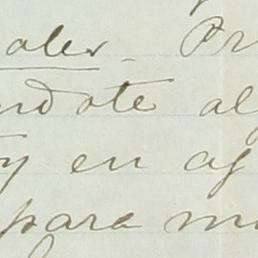 ales. Pr
ndote al
y en ag
para m